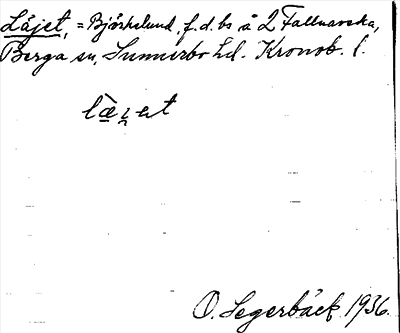 Läjet, = Björkelund, f.d. bs å 2 Fallnaveka,
Berga sn, Sunnerbo hd. Kronob. l.
O. Segerbäck 1936.